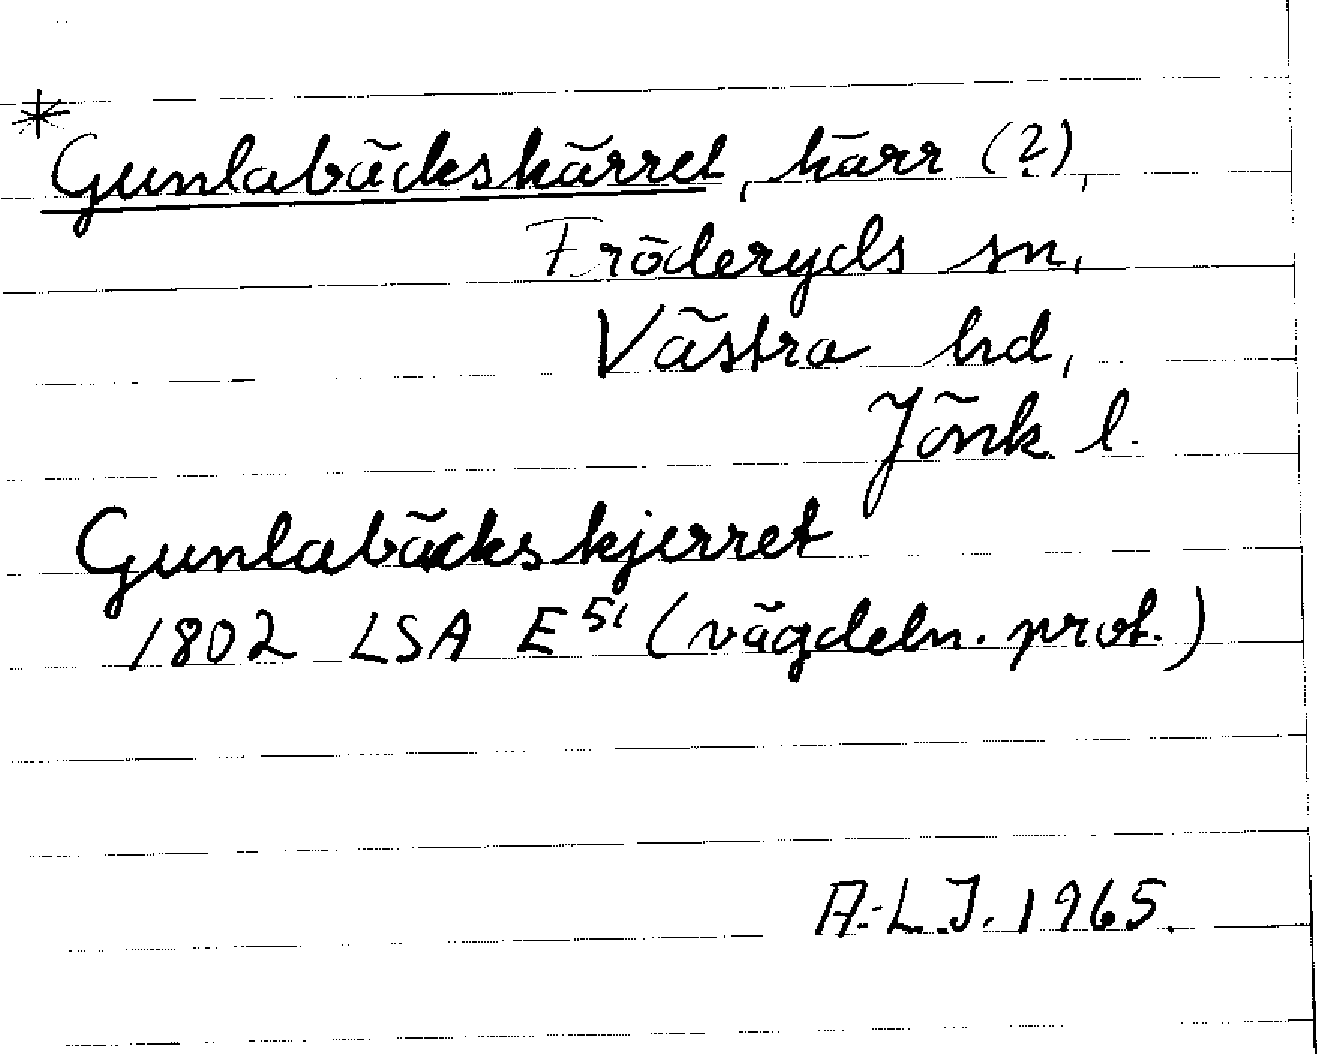 * Gunlabäckskärret, kärr (?),
Fröderyds sn,
Västra hd,
Jönk l.
Gunlabäckskjerret
1802 LSA E 51 (vägdeln. prot.)
A.-L. J. 1965.